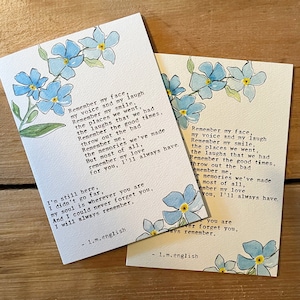 Remember my face,
my voice and my laugh
remember my smile.
the places we went,
the laughs that we had
remember the good times,
throw out the bad
Remember me.
Remember memories we've made
But most of all.
remember my love
for you, I'll always have.
I'm still here,
I didn't go far,
my soul is wherever you are
and I could never forget you,
I will always remember.
- l.m.english
Remember my face,
my voice and my laugh
remember my smile.
the places we went,
the laughs that we had
remember the good times,
throw out the bad
Remember me.
memories we've made
most of all.
my love
I'll always have
you are
forget you,
remember.
- l.m.english